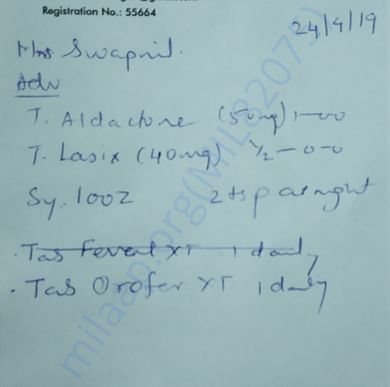 Registration No.: 55664
24/4/19
Mrs Swapnil.
Adv
T. Aldactone (50mg) 1-00
T. Lasix (40mg) 1/2-0-0
Sy. looz 2tsp at night
. Tab Feverel XT 1 daily
. Tab Orofer XT 1 daily
milaan.org(MIL82073)